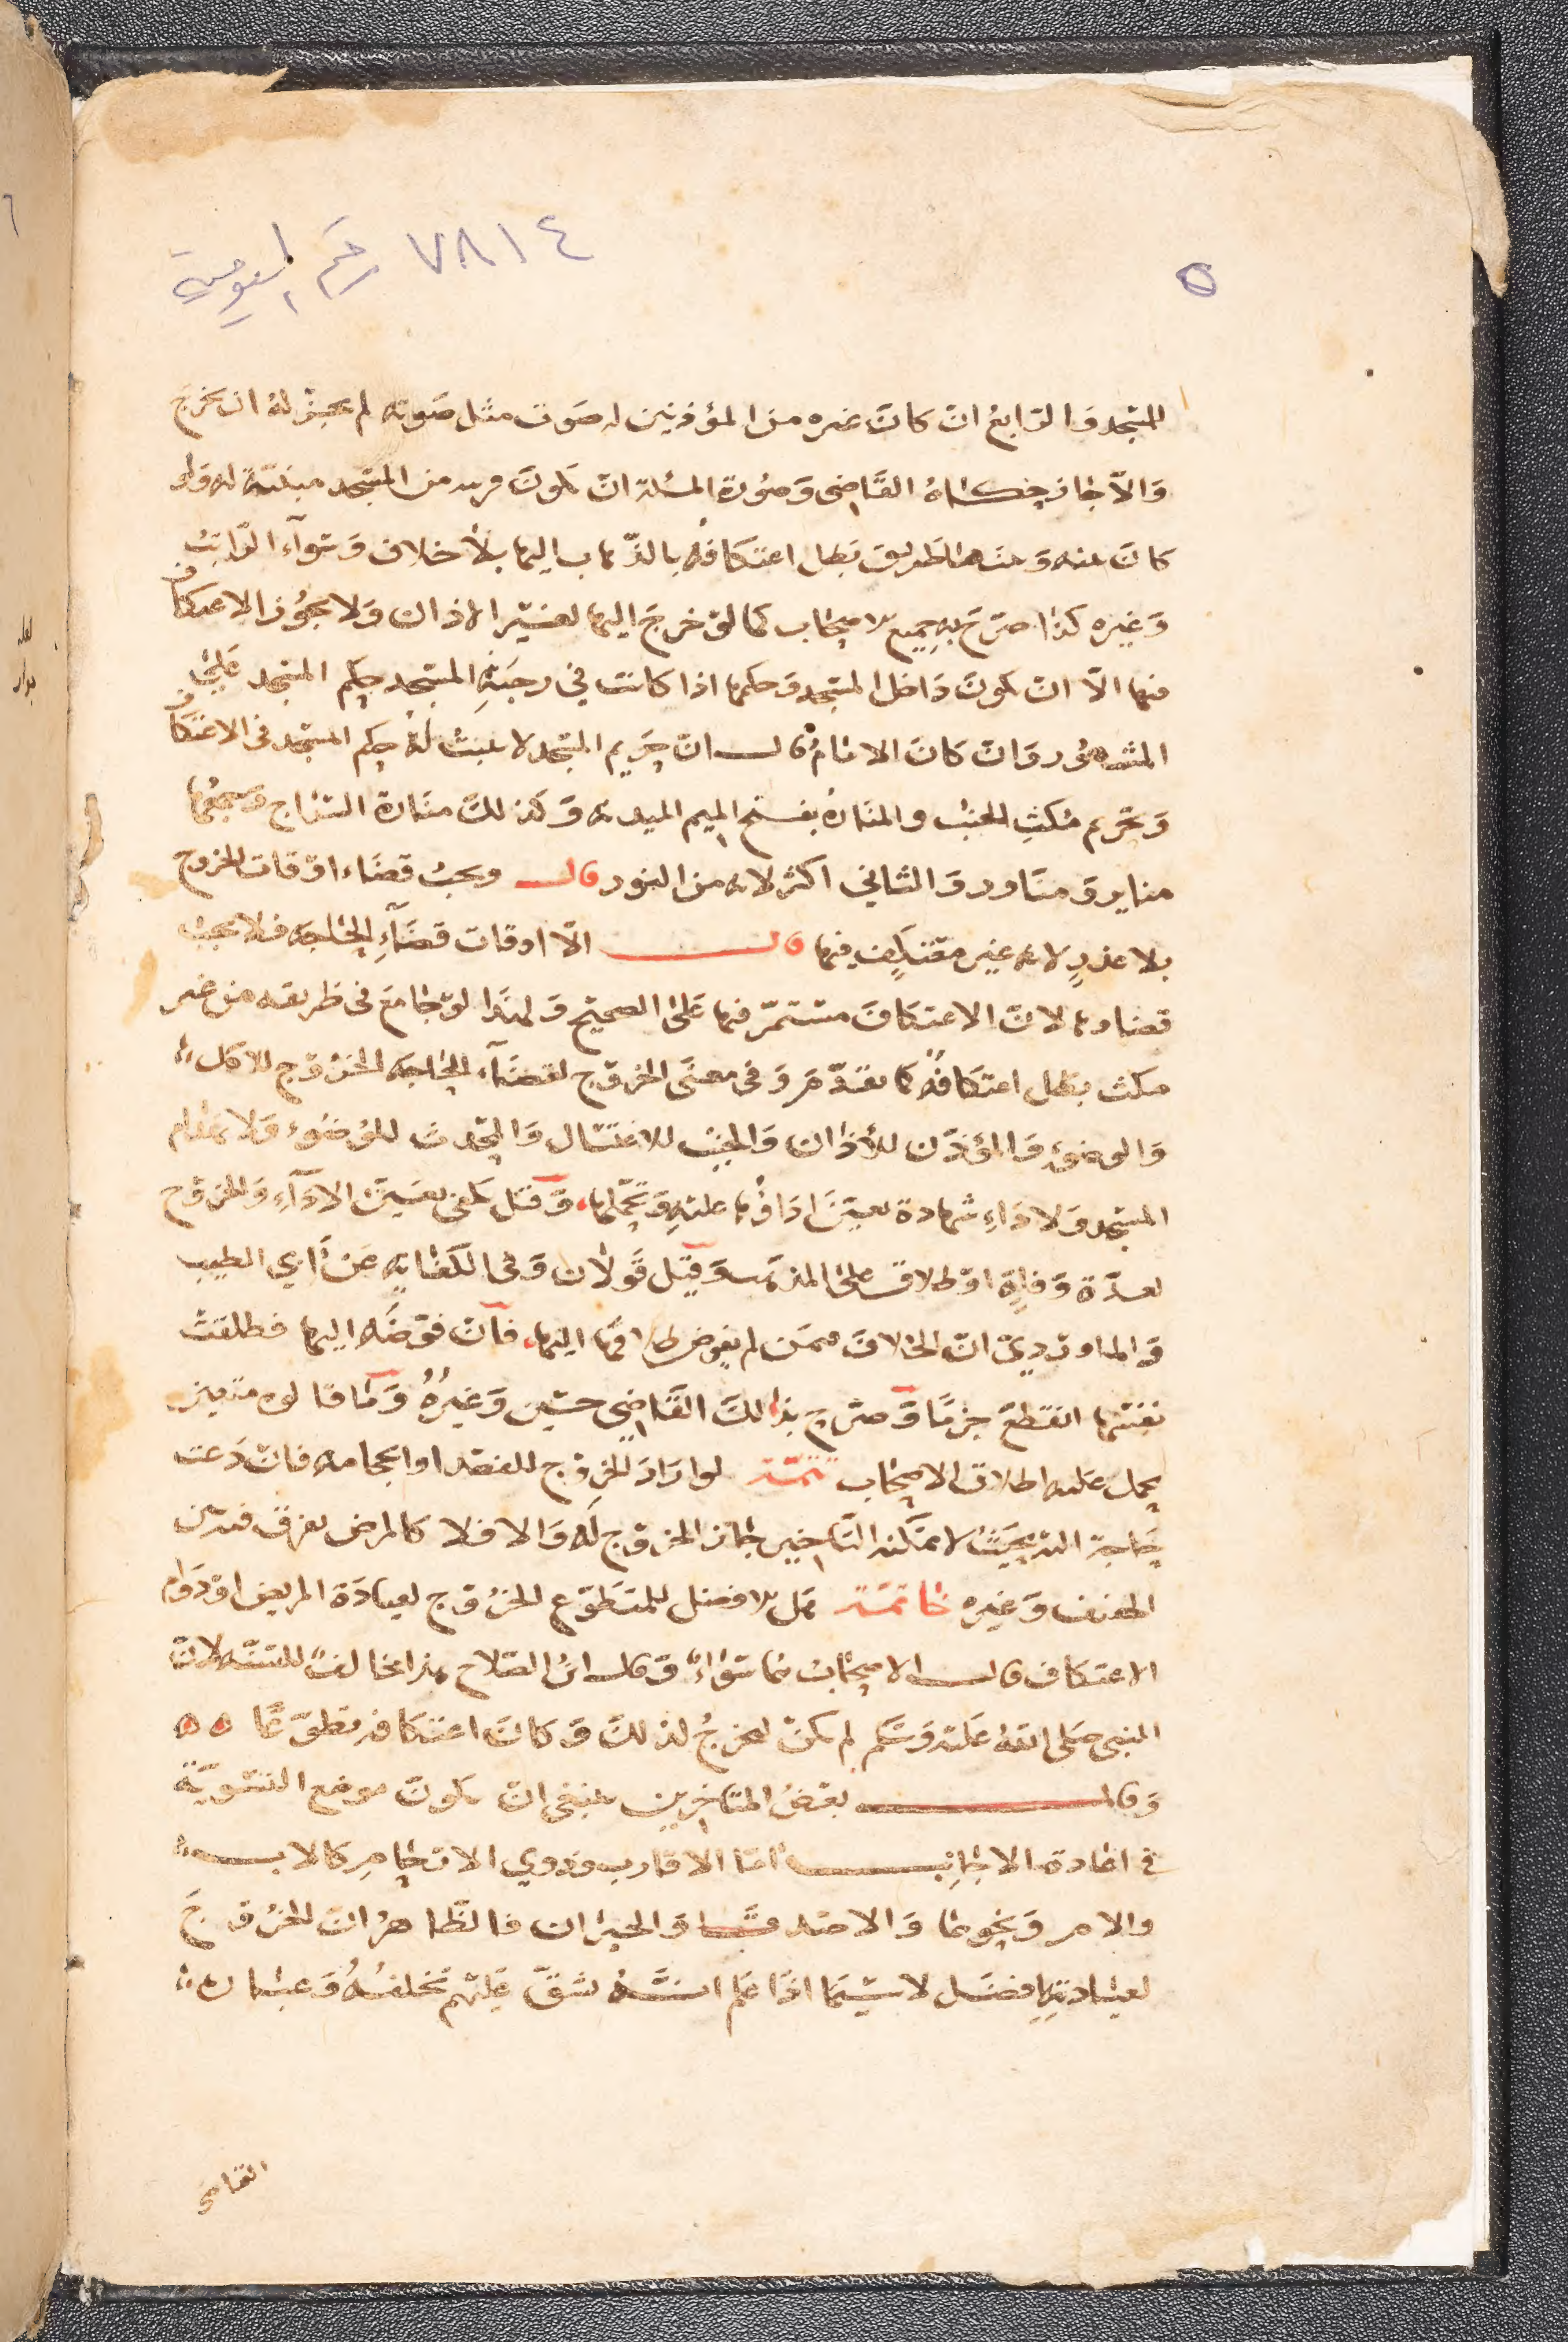 ٧٨١٤ رقم العمومية
٥
المسجد والرابع ان كان غيره من المؤذنين له صوت مثل صوته لم يجز له ان يخرج
والا جاز حكاه القاضي وصورة المسئلة ان تكون قريبه من المسجد مبنية له ولو
كان بينه وبينها طريق بطل اعتكافه بالذهاب اليها بلا خلاف وسواء الراتب
وغيره كذا صرح به جميع الاصحاب كما لو خرج اليها لغير الاذان ولا يجوز الاعتكاف
فيها الا ان تكون داخل المسجد وحكمها اذا كانت في رحبة المسجد حكم المسجد على
المشهور وان كان الامام قال ان حريم المسجد لا يثبت له حكم المسجد في الاعتكاف
وتحريم مكث الجنب والمنارة بفتح الميم الميذنه وكذلك منارة السراج وجمعها
مناير ومناور والثاني اكثر لانه من النور قال ويجب قضاء اوقات الخروج
بلا عذر لانه غير معتكف فيها قال الا اوقات قضاء الحاجه فلا يجب
قضاوها لان الاعتكاف مستمر فيها على الصحيح ولهذا لو جامع في طريقه من غير
مكث بطل اعتكافه كما تقدم وفي معنى الخروج لقضاء الحاجه الخروج للاكل
والوضوء والمؤذن للأذان والجنب للاغتسال والمحدث للوضوء ولا
المسجد ولاداء شهادة تعين اداؤها عليه وتحملها وقيل يكفي تعين الاداء والخروج
لعدة وفاة او طلاق على المذهب وقيل قولان وفي الكفايه عن ابي الطيب
والماوردي ان الخلاف فيمن لم يفوض طلاقها اليها فان فوضه اليها فطلقت
نفسها انقطع جزما وصرح بذلك القاضي حسين وغيره وما قالوه متعين
يحمل عليه اطلاق الاصحاب تتمه لو اراد الخروج للفصد او الحجامه فان دعت
حاجة اليه بحيث لا يمكنه التاخير جاز الخروج له والا فلا كالمرض يفرق فيه بين
الخفيف وغيره خاتمه هل الافضل للمتطوع الخروج لعيادة المريض او دوام
الاعتكاف قال الاصحاب هما سواء وقال ابن الصلاح هذا مخالف للسنه لان
النبي صلى الله عليه وسلم لم يكن يخرج لذلك وكان اعتكافه تطوعا
وقال بعض المتاخرين ينبغي ان يكون موضع التسوية
في عيادة الاجانب اما الاقارب وذوي الارحام كالاب
والام ونحوهما والاصدقاء والجيران فالظاهر ان الخروج
لعيادتهم افضل لا سيما اذا علم انه يشق عليهم تخلفه وعبارة
القاضي